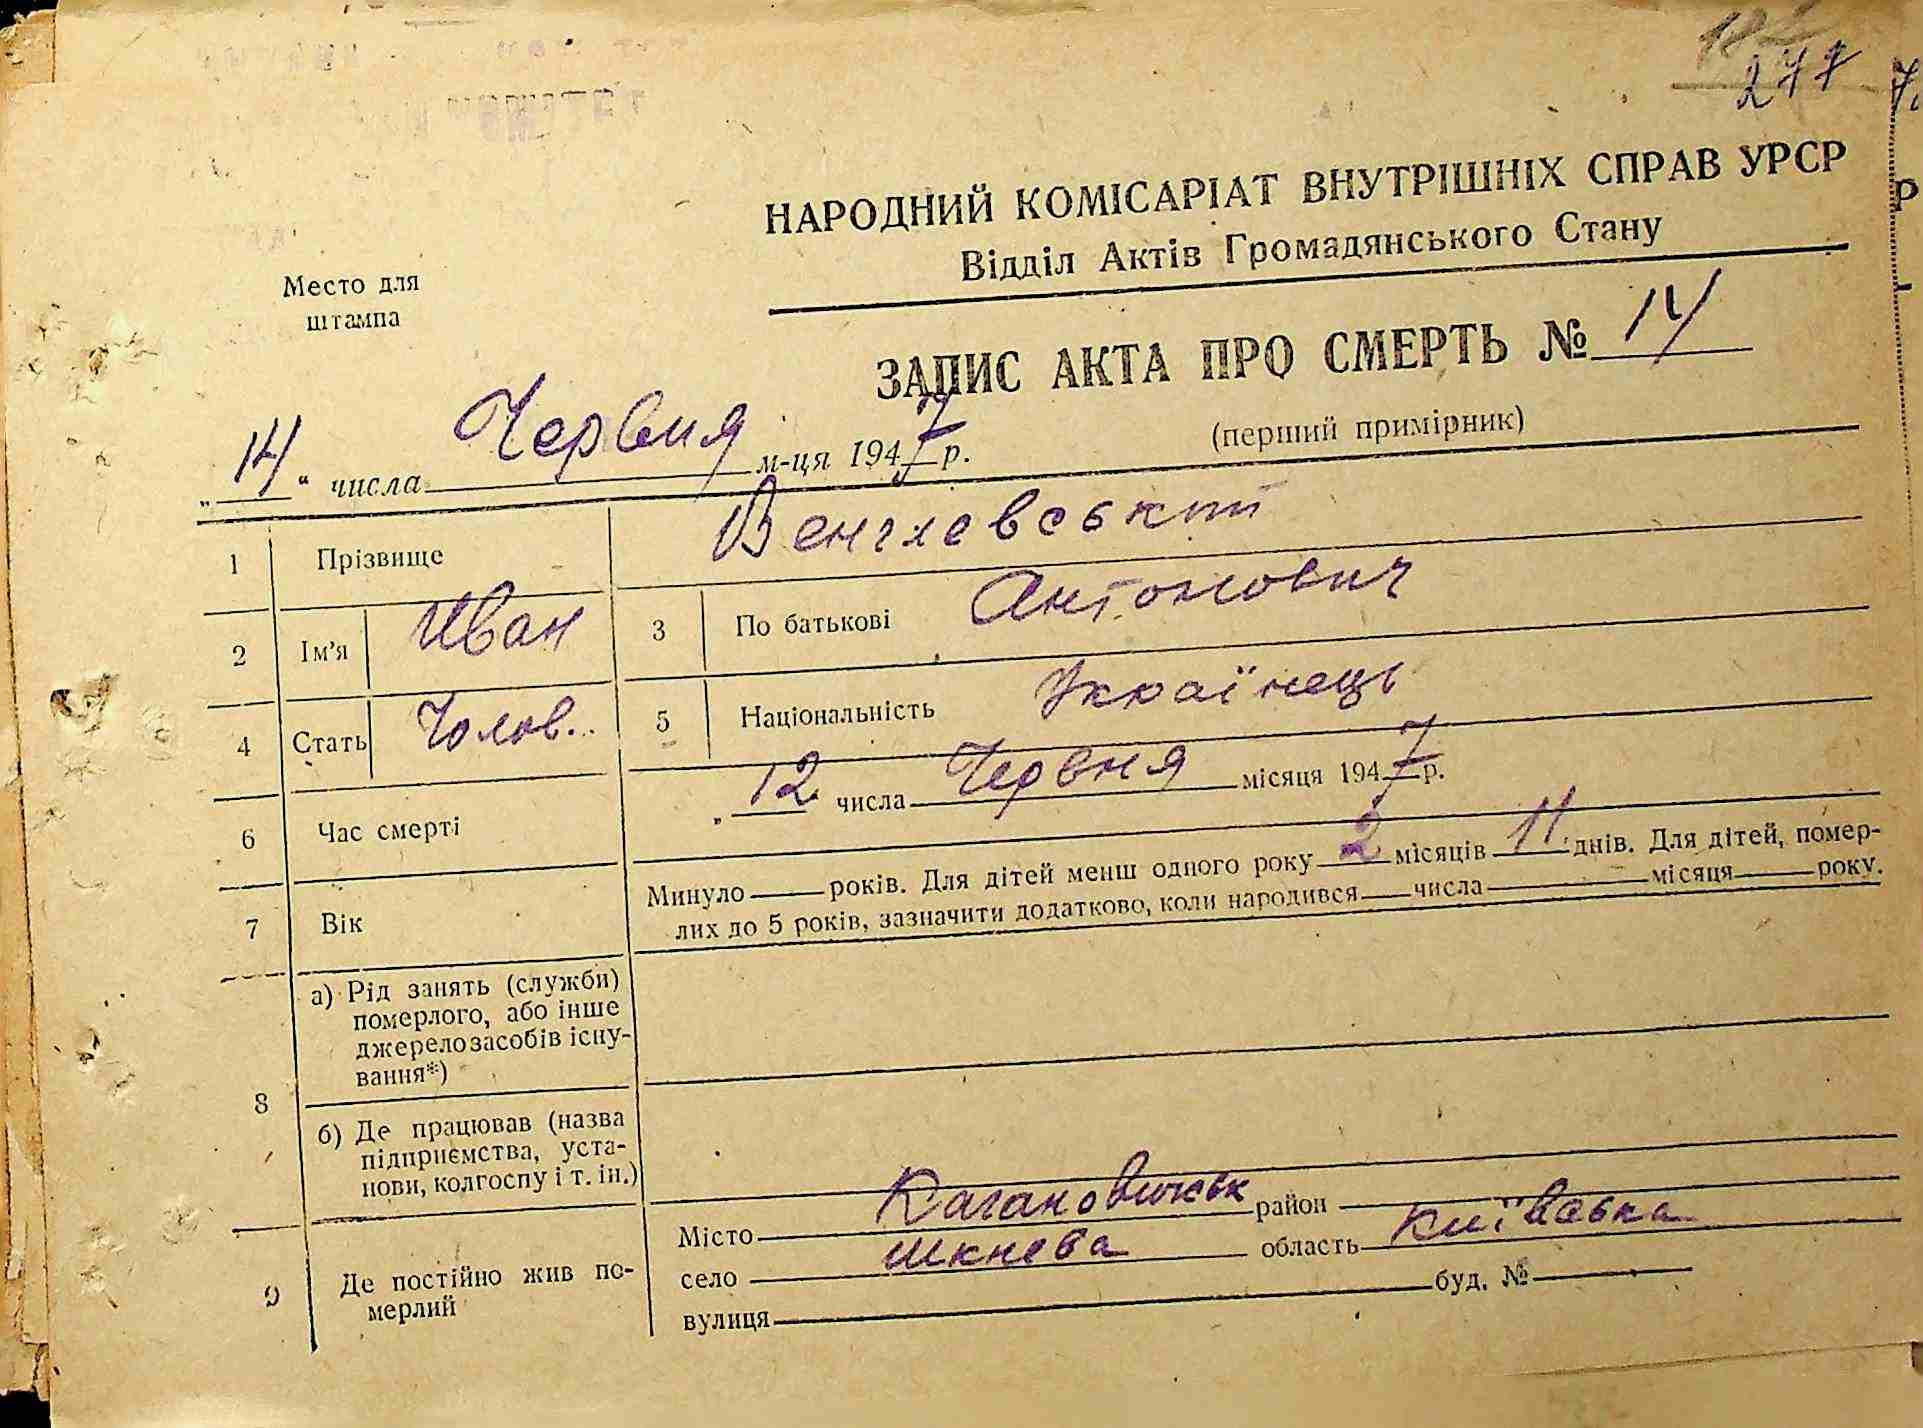 277
НАРОДНИЙ КОМІСАРІАТ ВНУТРІШНІХ СПРАВ УРСР
Відділ Актів Громадянського Стану
Место для
штампа
ЗАПИС АКТА ПРО СМЕРТЬ № 14
(перший примірник)
„14“ числа Червня м-ця 1947 р.
1 Прізвище Венглевський
2 Ім'я Иван 3 По батькові Антонович
4 Стать Чолов. 5 Національність Українець
6 Час смерті „12 числа Червня місяця 1947 р.
7 Вік Минуло рокiв. Для дітей менш одного року 2 місяців 11 днів. Для дітей, помер-
лих до 5 років, зазначити додатково, коли народився числа місяця року.
8 а) Рід занять (служби)
померлого, або інше
джерело засобів існу-
вання*)
б) Де працював (назва
підприємства, уста-
нови, колгоспу і т. ін.)
9 Де постійно жив по-
мерлий
Місто Кагановичськ район
село Шкнева область Київська
вулиця буд. №